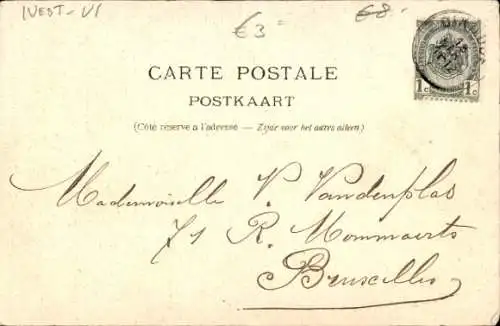 IVEST-VI
€3
€8-
DIXMUDE
1c 1c
CARTE POSTALE
POSTKAART
(Côté réservé à l'adresse — Zijde voor het adres alleen)
Mademoiselle V. Vandenplas
71 R. Mommaerts
Bruxelles